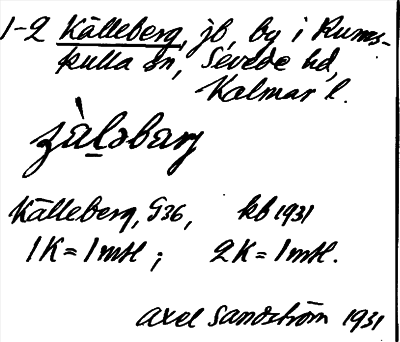 1-2 Källeberg, jb, by i Rums-
kulla sn, Sevede hd,
Kalmar l.
Källeberg, G36, kb 1931
1K = 1 mtl; 2K = 1 mtl.
Axel Sandström 1931